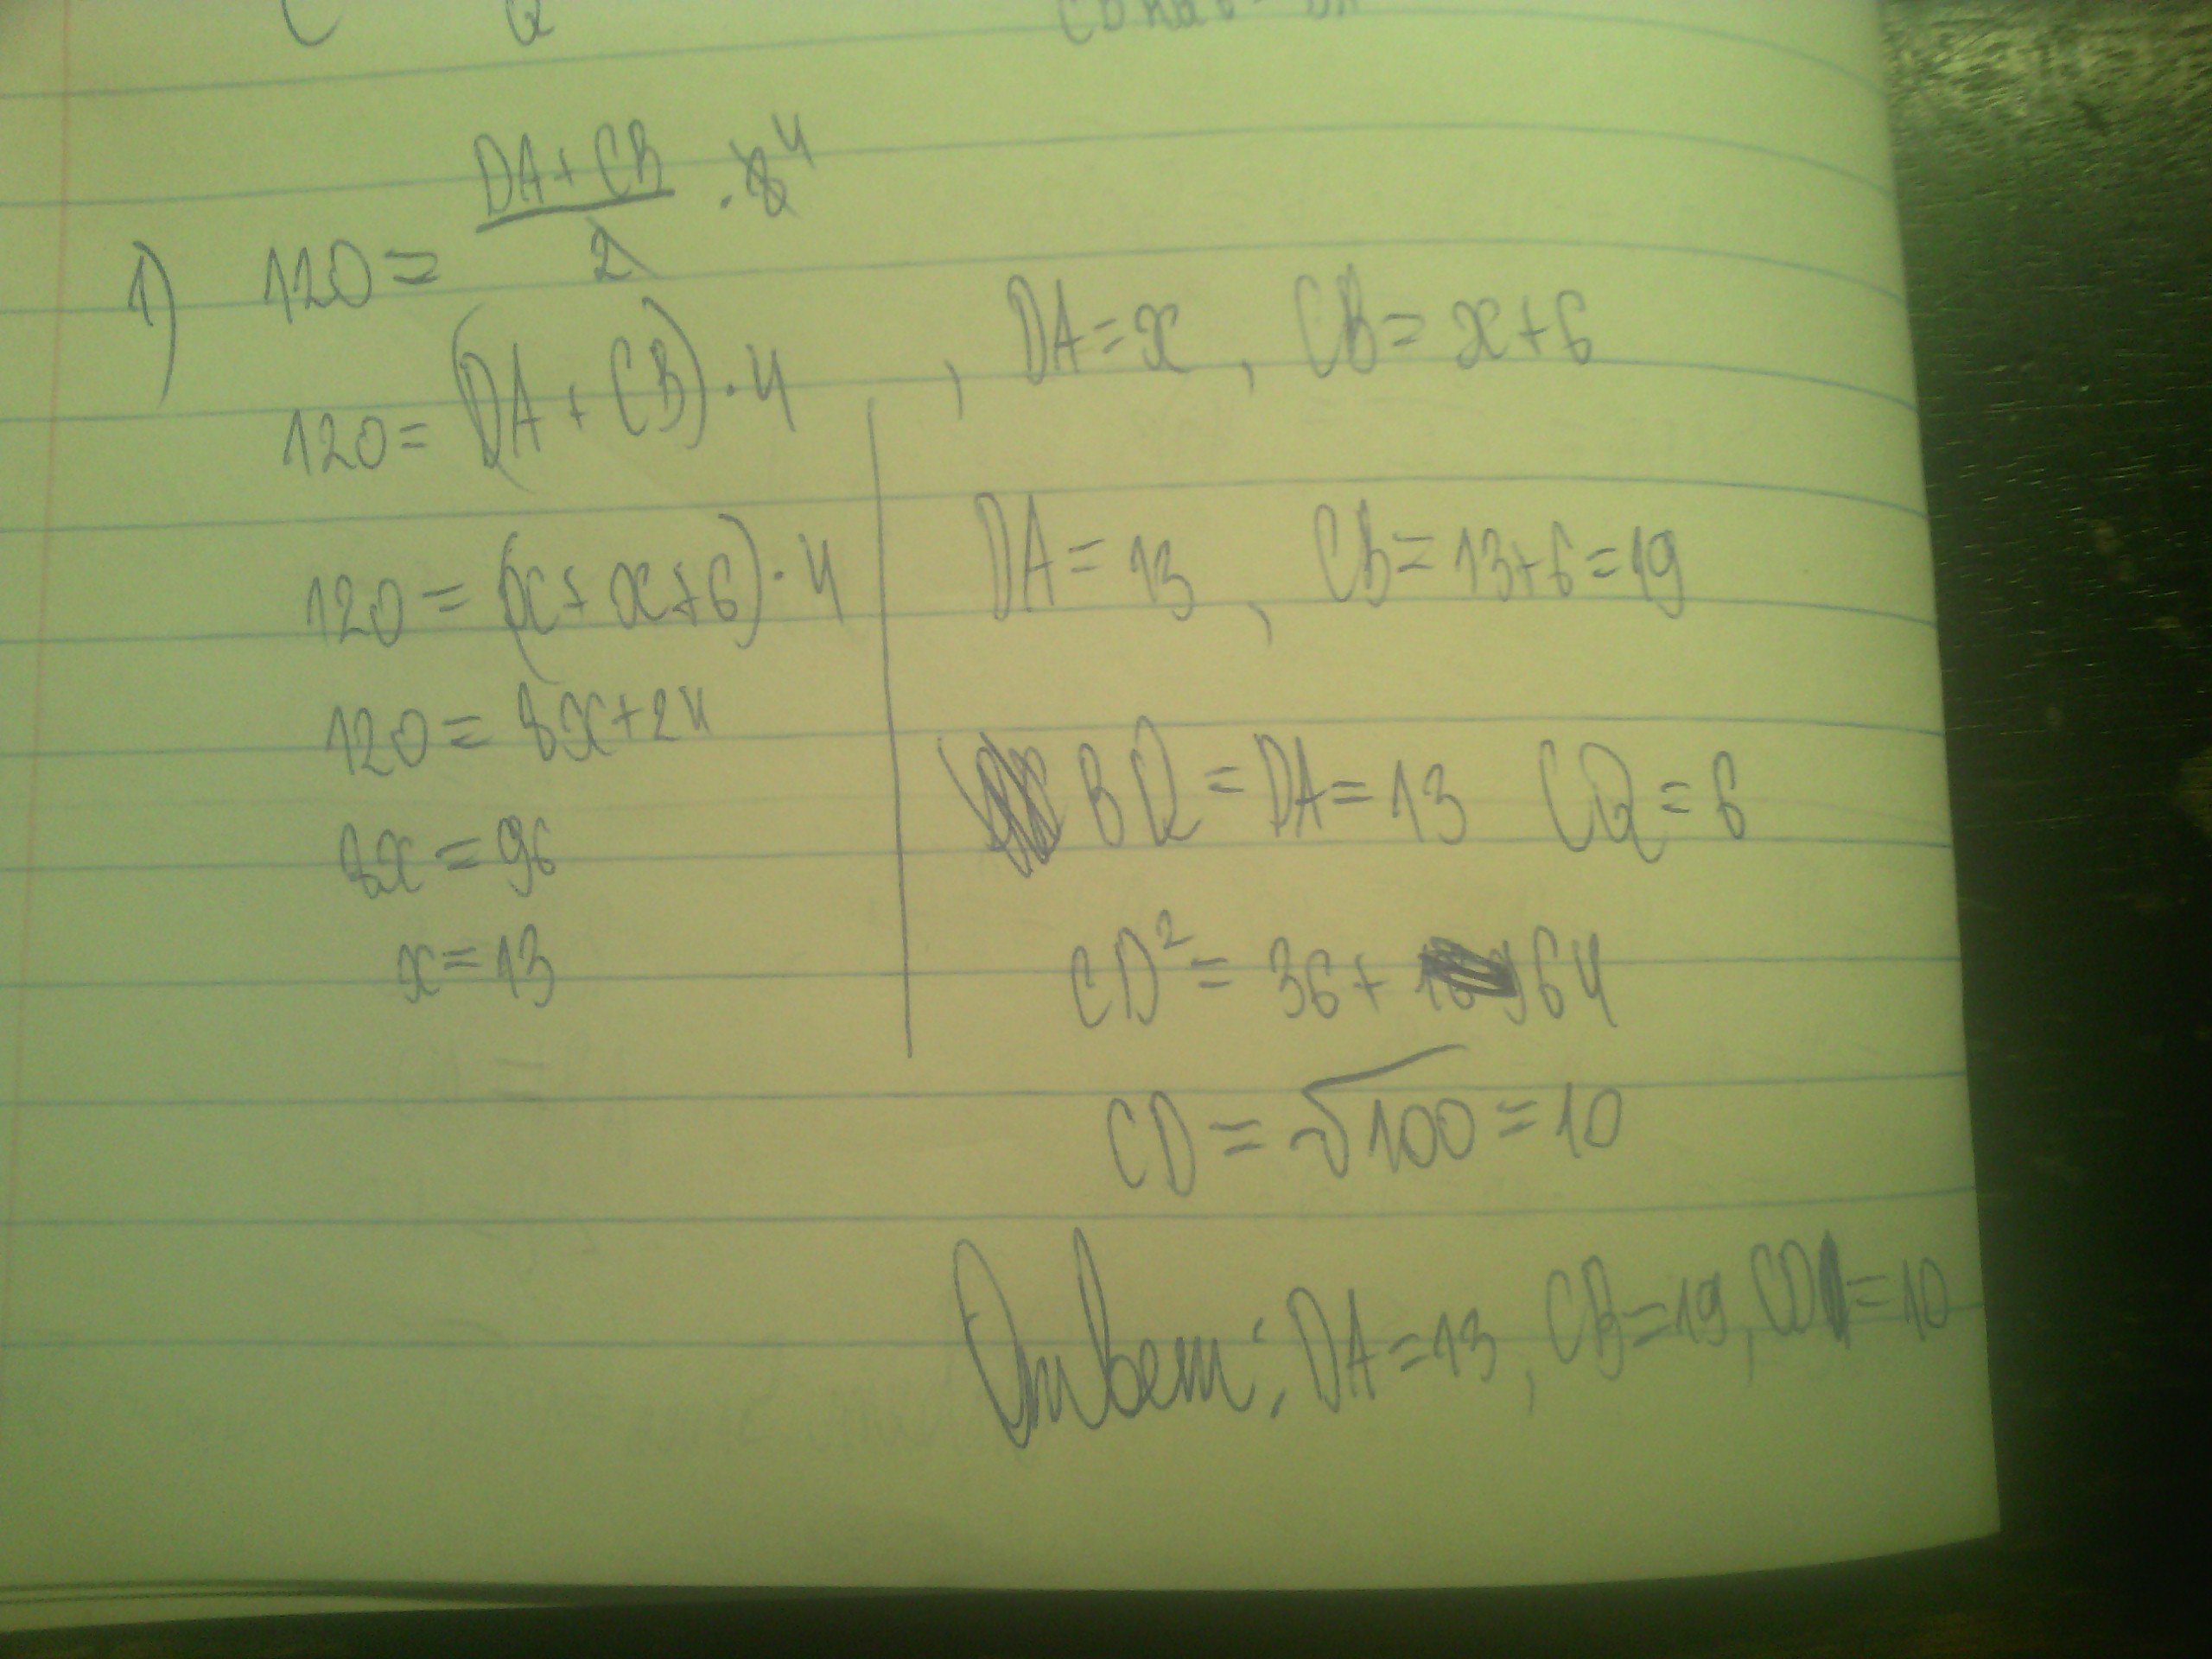 C Q
1) 120 = (DA + CB)/2 · 8 4
120 = (DA + CB) · 4 , DA = x , CB = x + 6
120 = (x + x + 6) · 4
120 = 8x + 24
8x = 96
x = 13
DA = 13 , CB = 13 + 6 = 19
BQ = DA = 13 CQ = 6
CD² = 36 + 64
CD = √100 = 10
Ответ: DA = 13 , CB = 19 , CD = 10